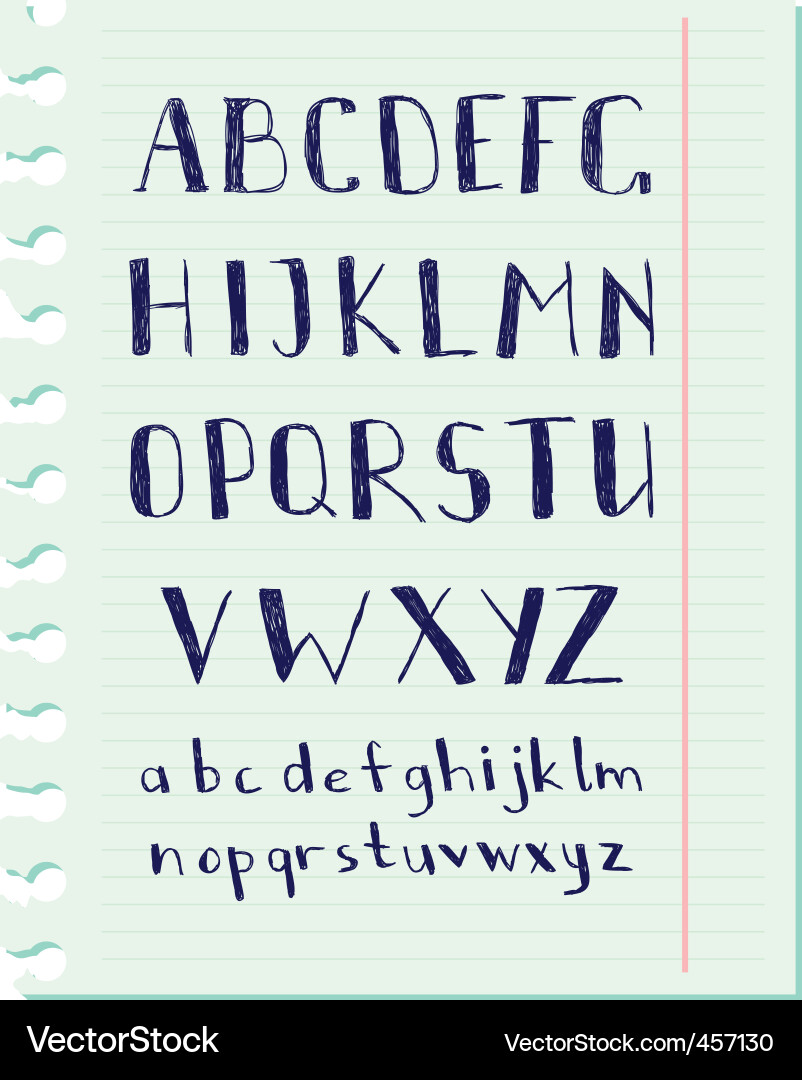 ABCDEFG
HIJKLMN
OPQRSTU
VWXYZ
abcdefghijklm
nopqrstuvwxyz
VectorStock VectorStock.com/457130